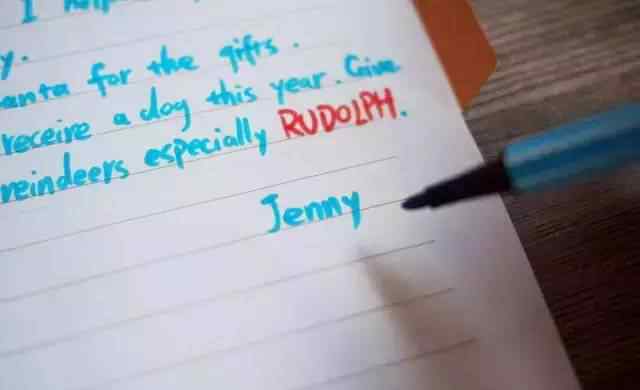 I
y.
anta for the gifts.
receive a dog this year. Give
reindeers especially RUDOLPH.
Jenny